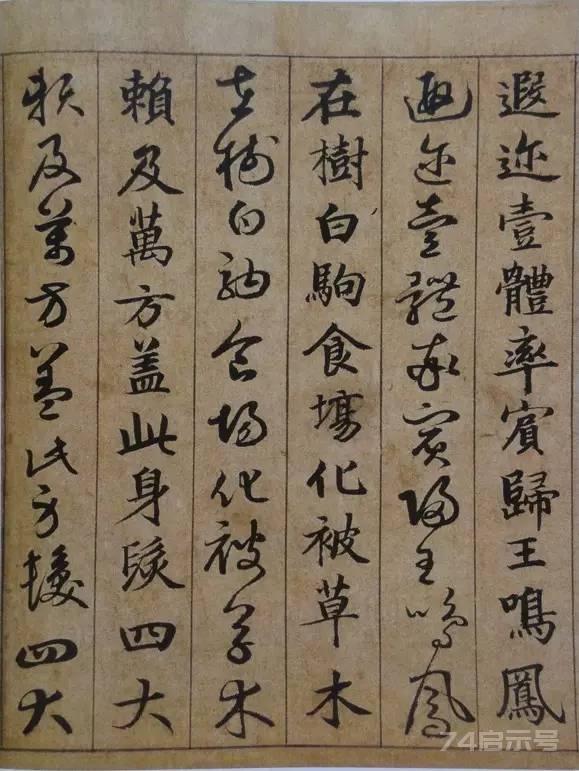 遐迩壹體率賓歸王鳴鳳
遐迩壹體率賓歸王鳴鳳
在樹白駒食場化被草木
在樹白駒食場化被草木
賴及萬方盖此身髮四大
賴及萬方盖此身髮四大
74启示号